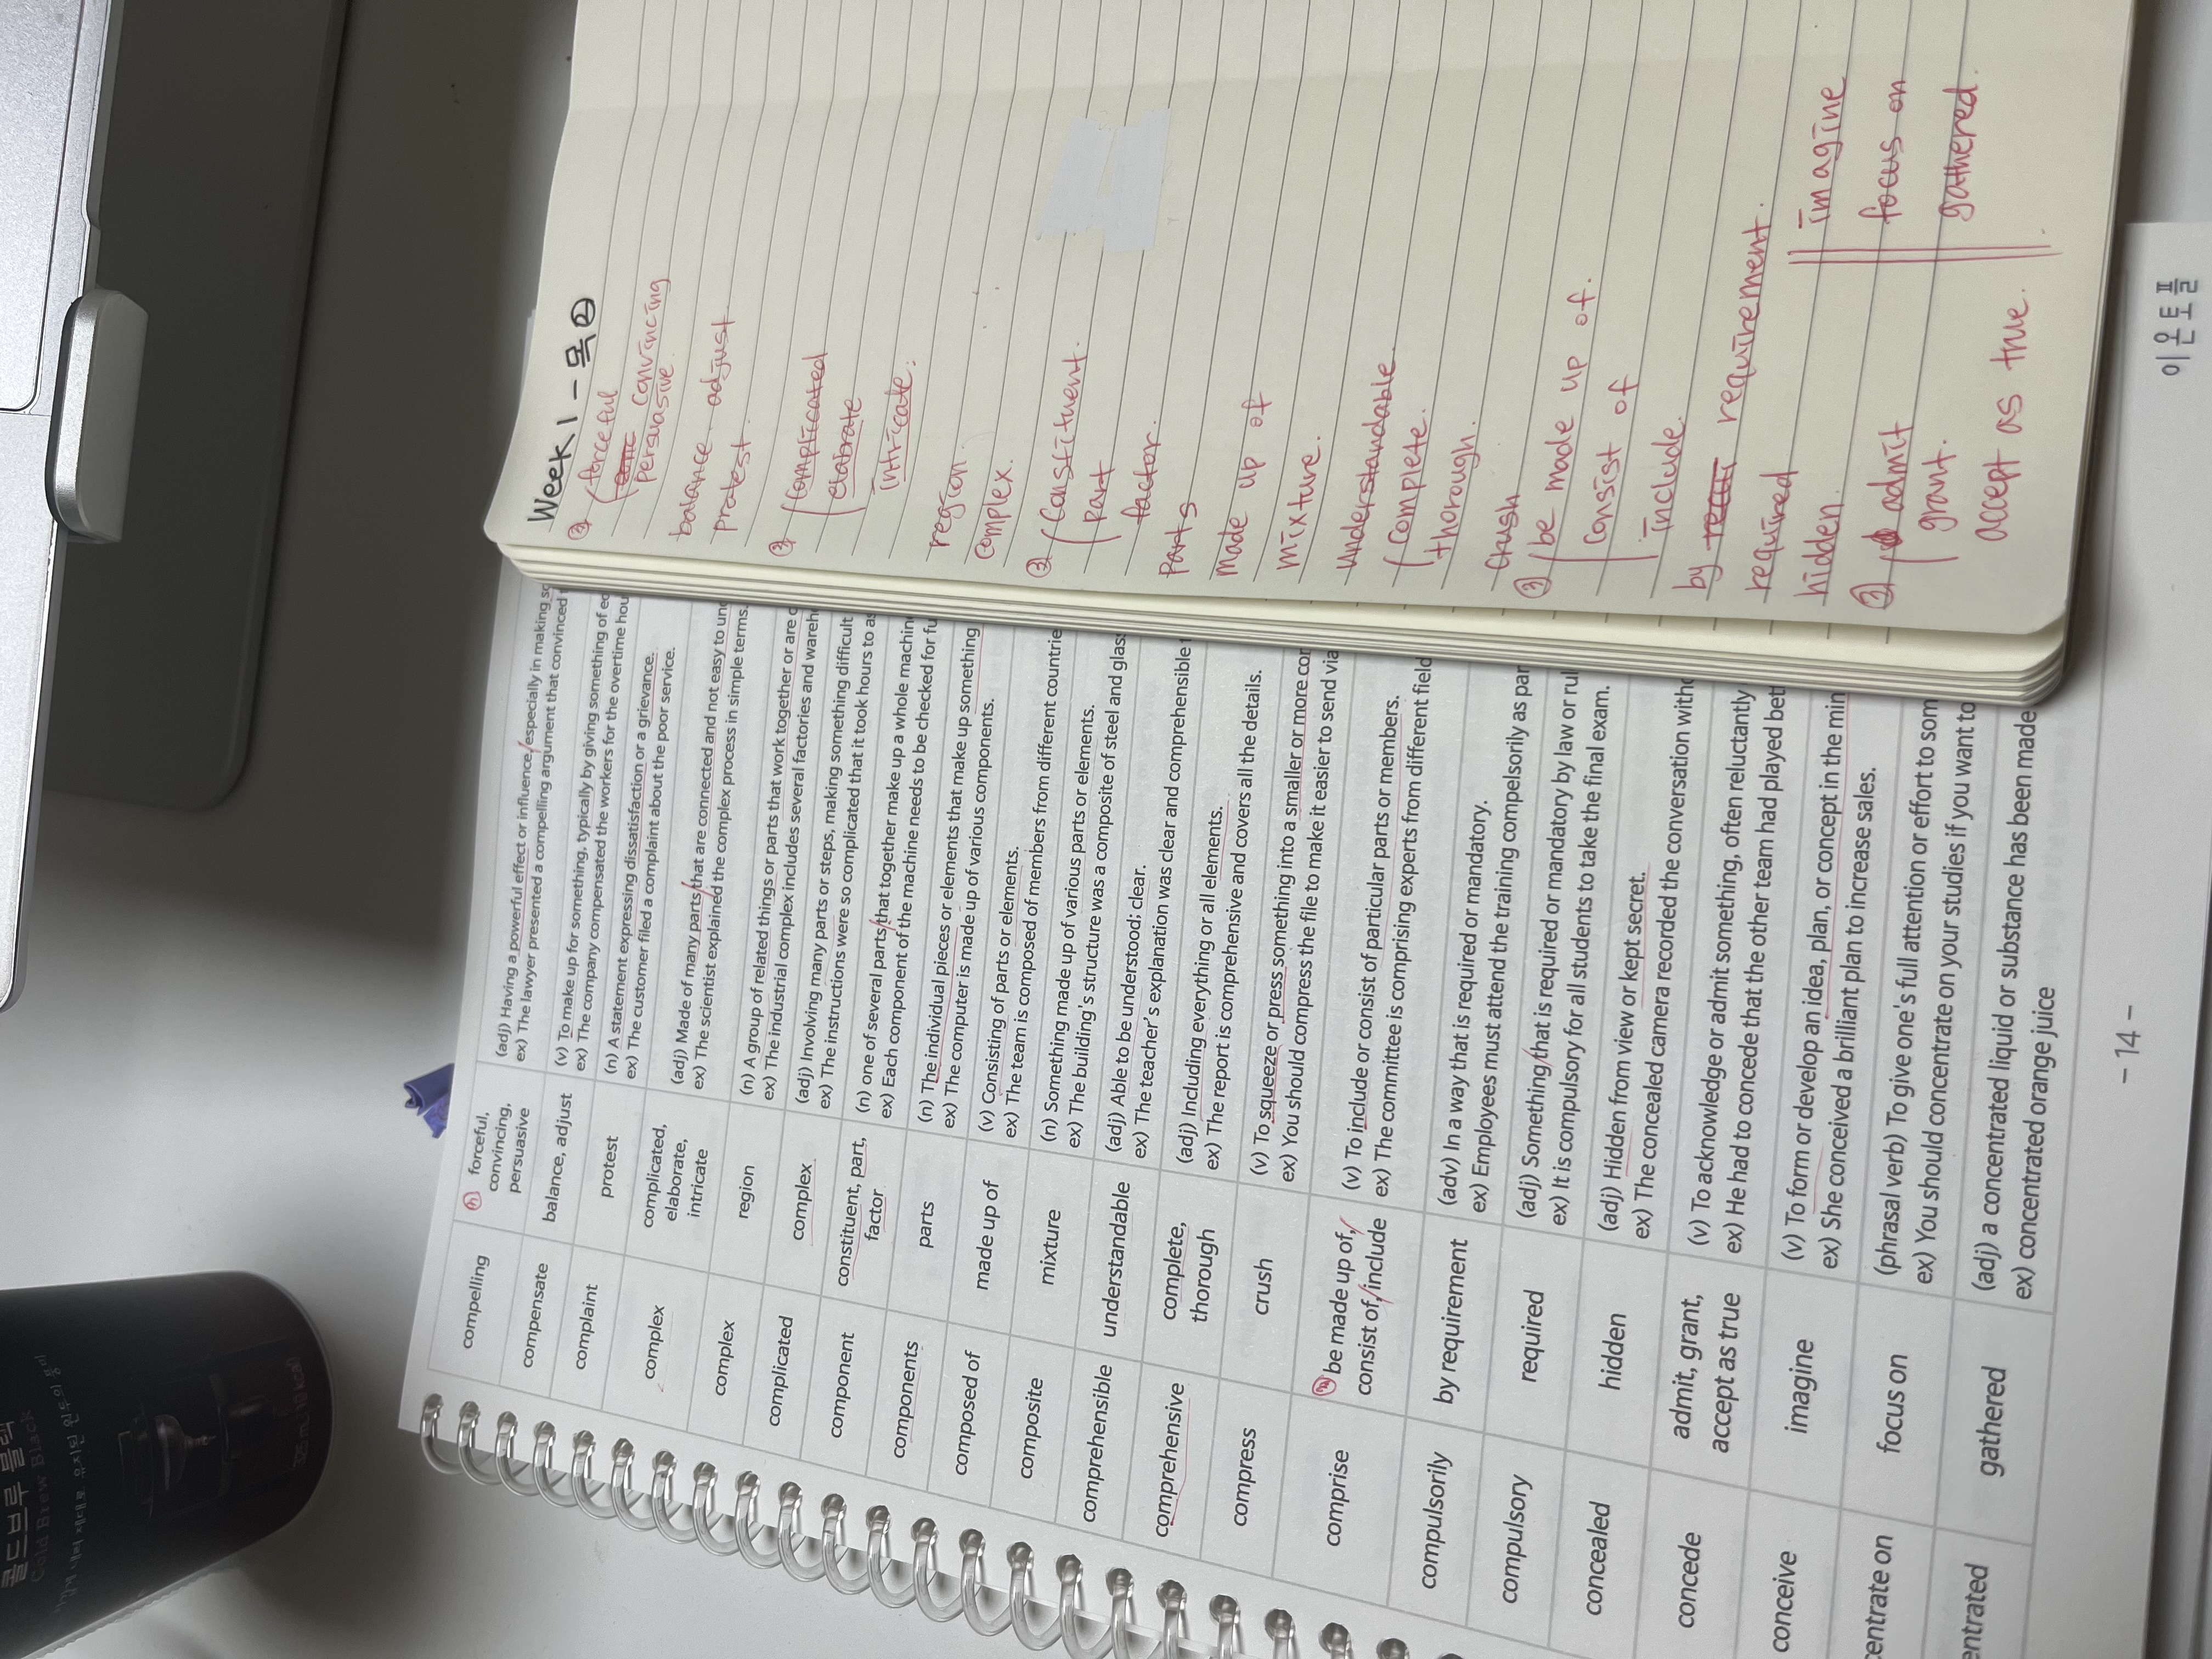 Week 1 - 목 ②
③ forceful
convincing
persuasive
balance, adjust
protest
③ complicated
elabrate
intricate.
region.
complex.
③ Constituent.
part
factor.
Parts
made up of
mixture.
Understandable.
complete.
thorough.
crush
③ be made up of.
consist of
include.
by requirement.
required
hidden.
③ admit
grant.
accept as true.
imagine
focus on
gathered.
compelling
③ forceful,
convincing,
persuasive
(adj) Having a powerful effect or influence, especially in making
ex) The lawyer presented a compelling argument that convinced
compensate
balance, adjust
(v) To make up for something, typically by giving something of
ex) The company compensated the workers for the overtime
complaint
protest
(n) A statement expressing dissatisfaction or a grievance.
ex) The customer filed a complaint about the poor service.
complex
complicated,
elaborate,
intricate
(adj) Made of many parts that are connected and not easy to
ex) The scientist explained the complex process in simple terms.
complex
region
(n) A group of related things or parts that work together or are
ex) The industrial complex includes several factories and
complicated
complex
(adj) Involving many parts or steps, making something difficult
ex) The instructions were so complicated that it took hours to
component
constituent, part,
factor
(n) one of several parts that together make up a whole
ex) Each component of the machine needs to be checked for
components
parts
(n) The individual pieces or elements that make up something
ex) The computer is made up of various components.
composed of
made up of
(v) Consisting of parts or elements.
ex) The team is composed of members from different
composite
mixture
(n) Something made up of various parts or elements.
ex) The building's structure was a composite of steel and
comprehensible
understandable
(adj) Able to be understood; clear.
ex) The teacher's explanation was clear and comprehensible
comprehensive
complete,
thorough
(adj) Including everything or all elements.
ex) The report is comprehensive and covers all the details.
compress
crush
(v) To squeeze or press something into a smaller or more
ex) You should compress the file to make it easier to send via
comprise
③ be made up of,
consist of, include
(v) To include or consist of particular parts or members.
ex) The committee is comprising experts from different
compulsorily
by requirement
(adv) In a way that is required or mandatory.
ex) Employees must attend the training compelsorily as
compulsory
required
(adj) Something that is required or mandatory by law or
ex) It is compulsory for all students to take the final exam.
concealed
hidden
(adj) Hidden from view or kept secret.
ex) The concealed camera recorded the conversation
concede
admit, grant,
accept as true
(v) To acknowledge or admit something, often reluctantly
ex) He had to concede that the other team had played
conceive
imagine
(v) To form or develop an idea, plan, or concept in the
ex) She conceived a brilliant plan to increase sales.
centrate on
focus on
(phrasal verb) To give one's full attention or effort to
ex) You should concentrate on your studies if you want to
entrated
gathered
(adj) a concentrated liquid or substance has been made
ex) concentrated orange juice
- 14 -
이은토플
콜드브루 블랙
Cold Brew Black